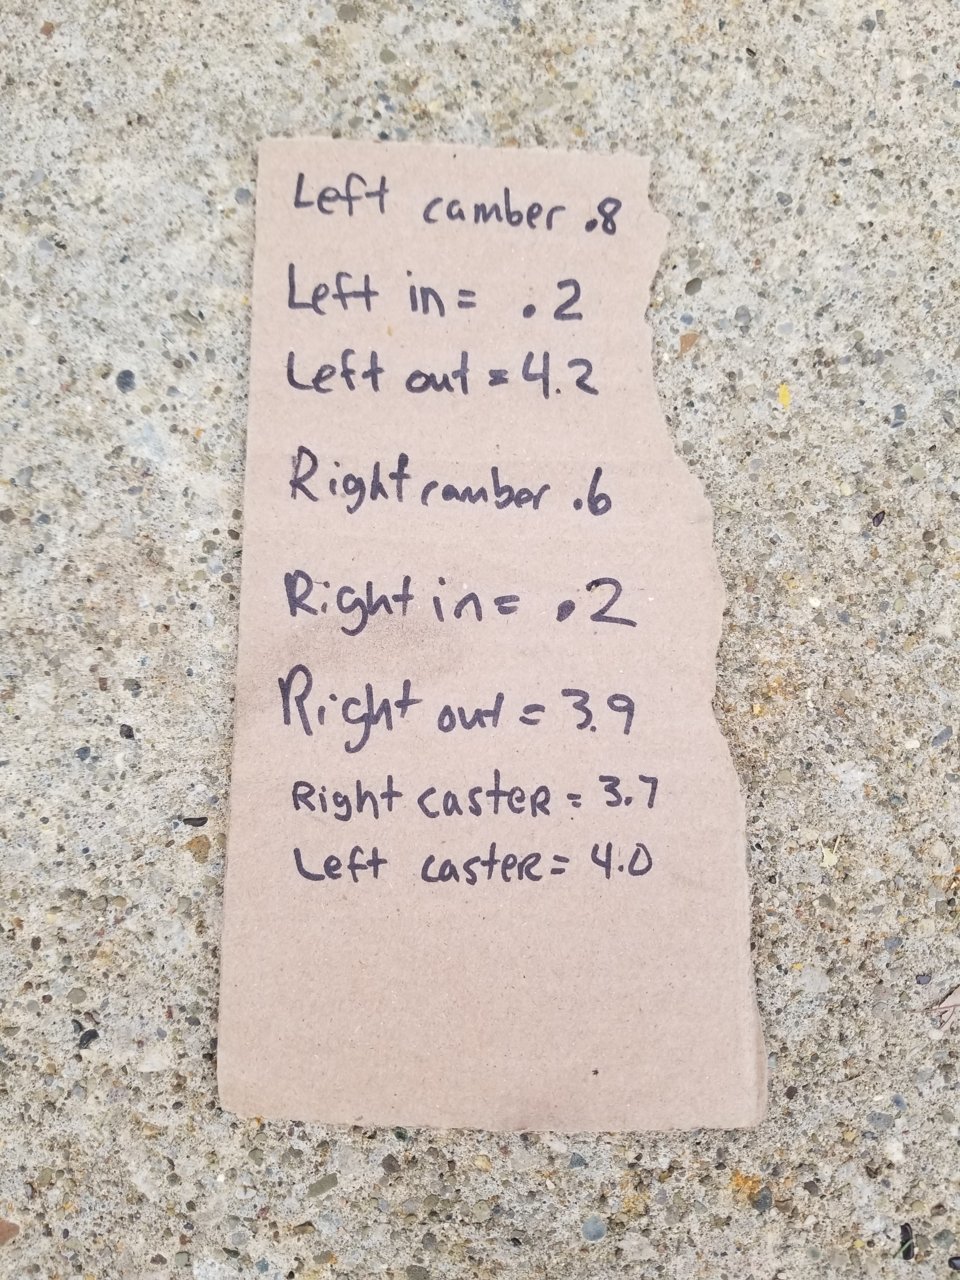 Left camber .8
Left in = .2
Left out = 4.2
Right camber .6
Right in = .2
Right out = 3.9
Right casteR = 3.7
Left casteR = 4.0